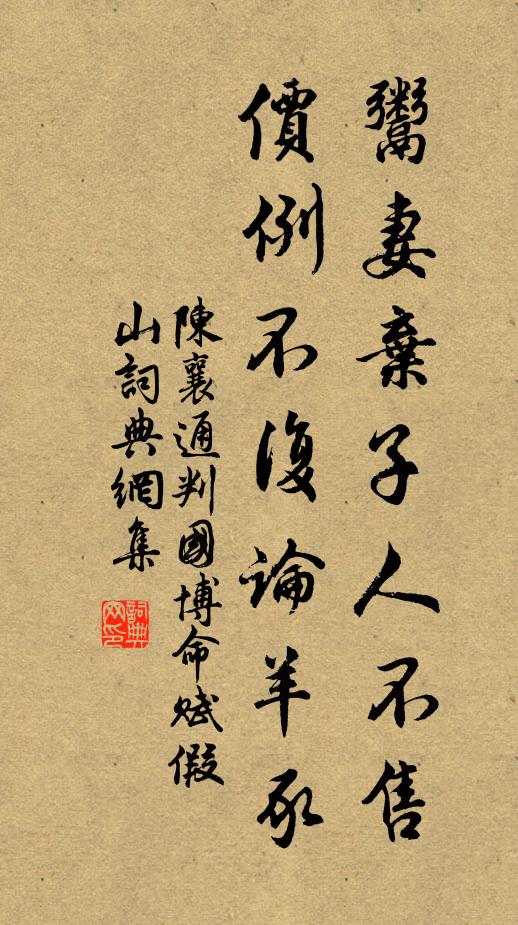 鬻妻棄子人不售
價例不復論羊豕
陳襄通判國博命賦假
山詞典網集
詞典
网印